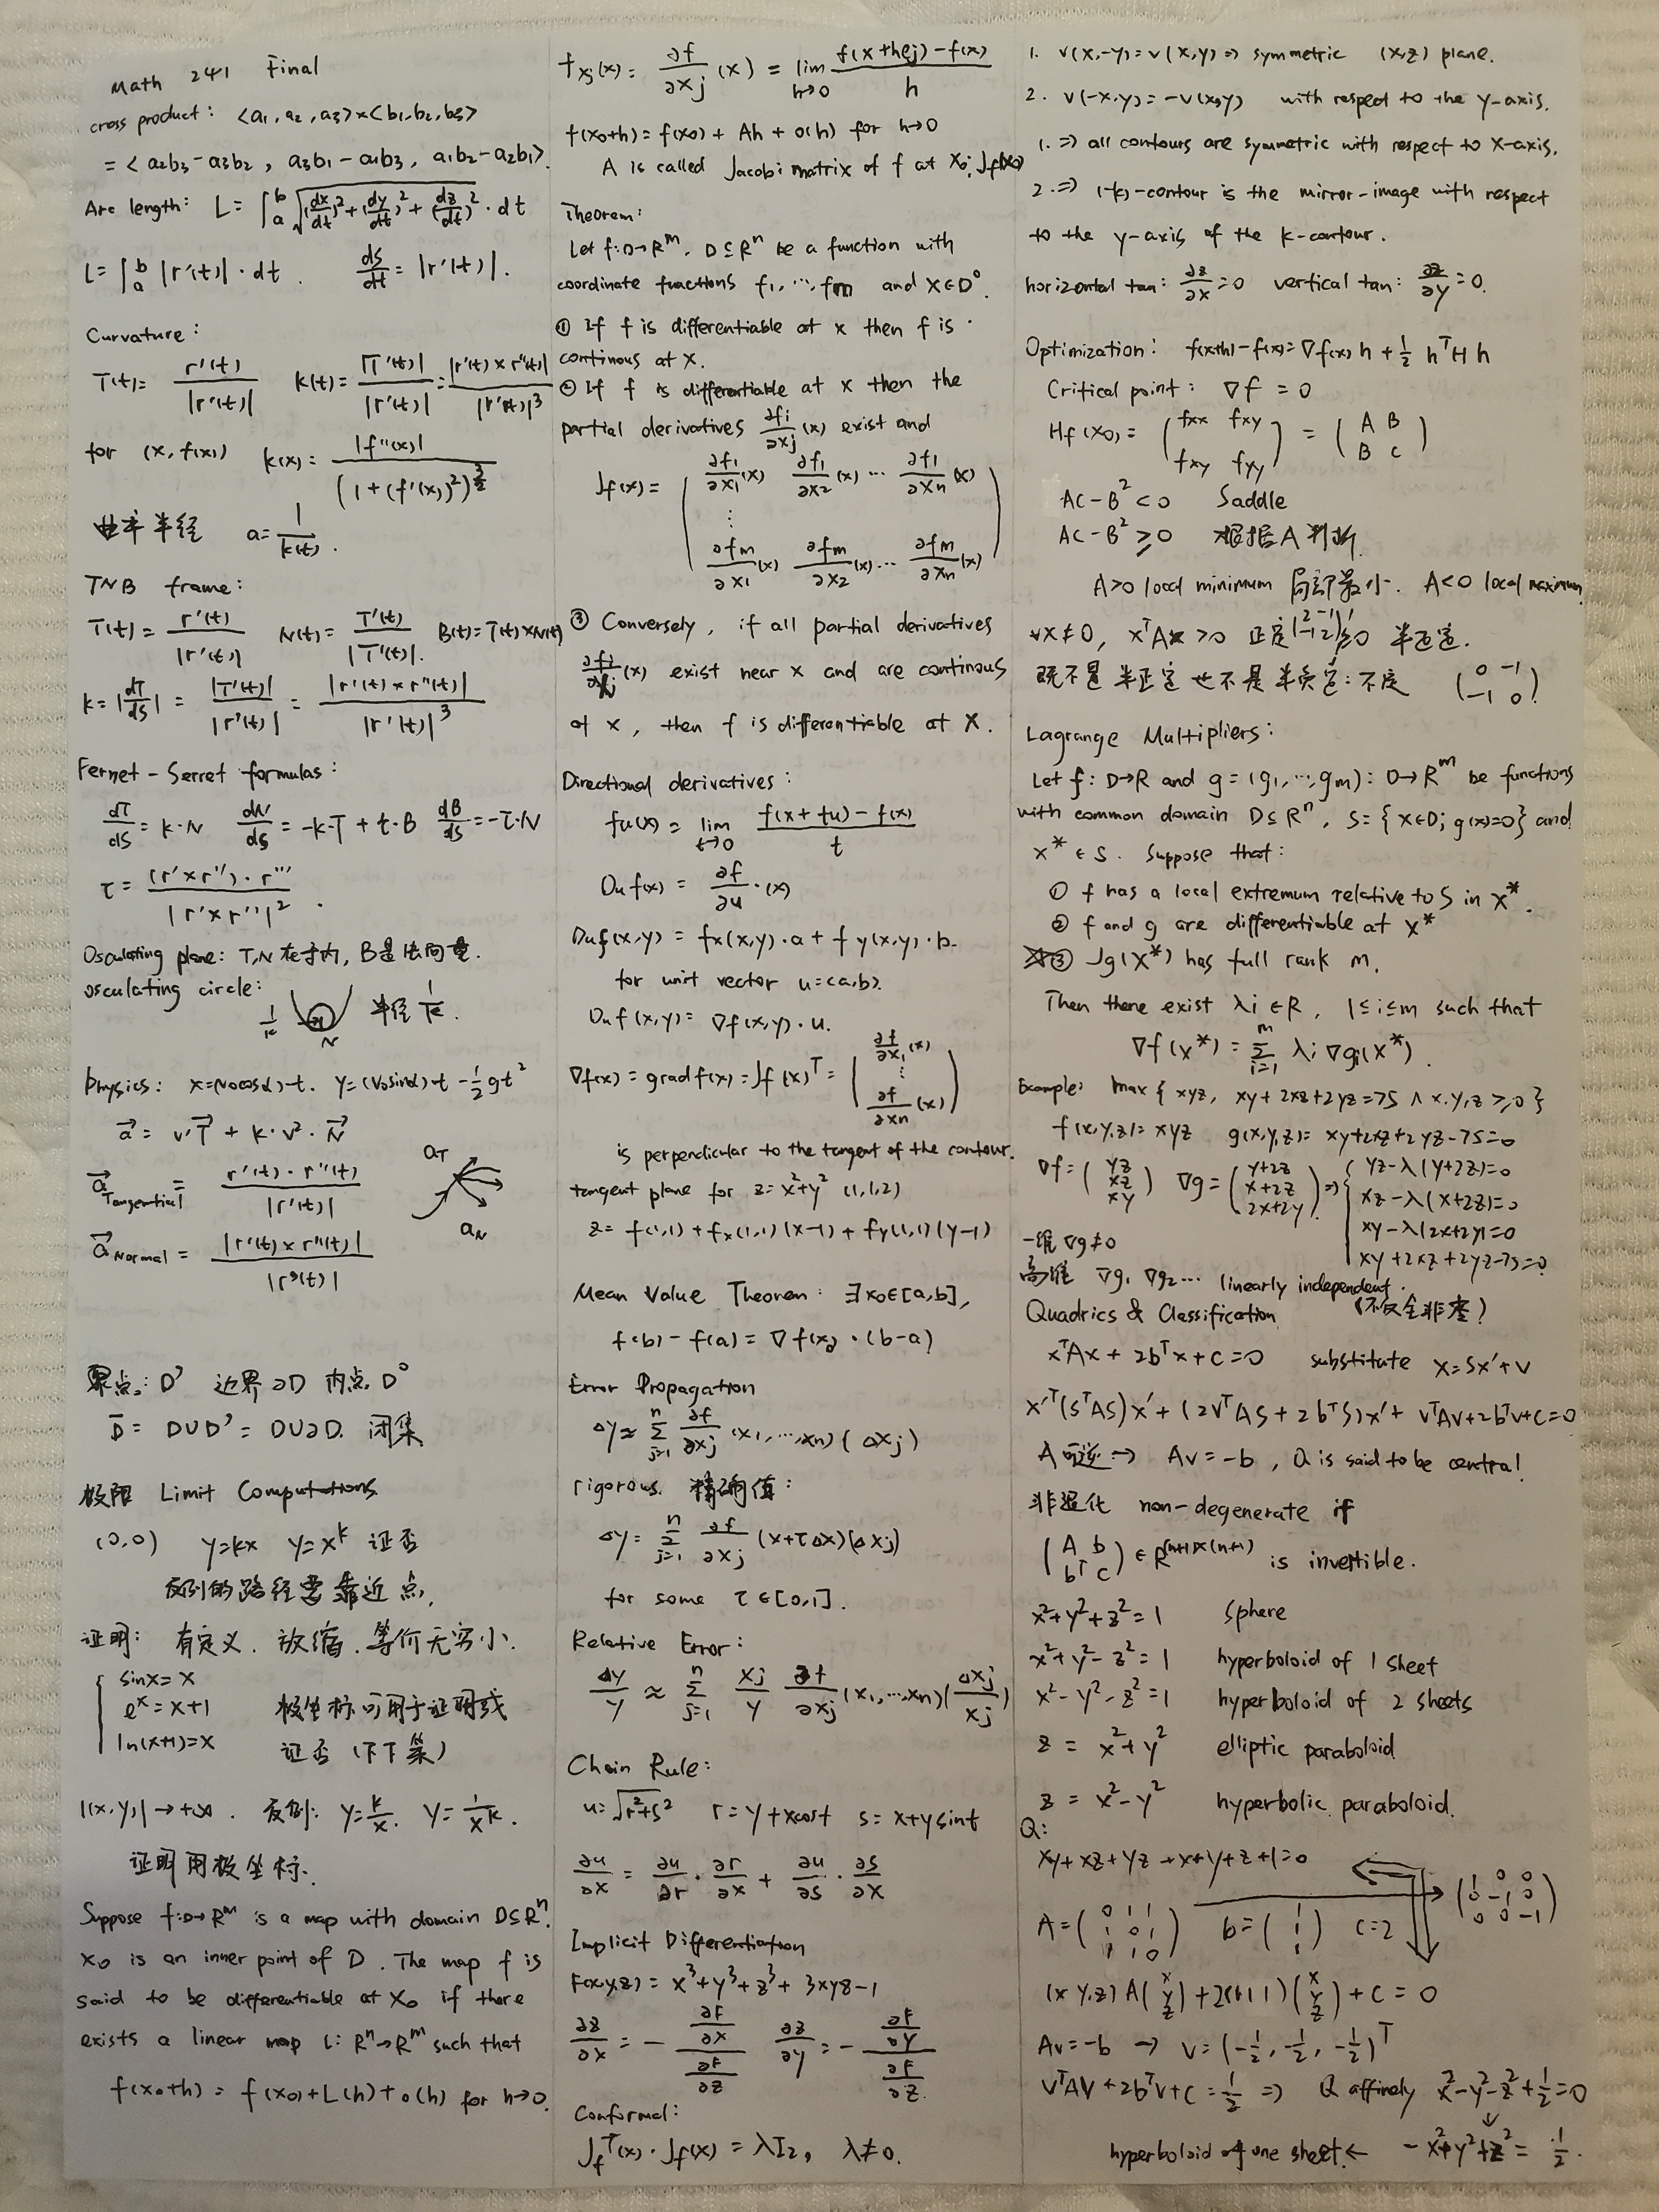 Math 241 Final
cross product: <a1, a2, a3>×<b1, b2, b3>
= <a2b3-a3b2, a3b1-a1b3, a1b2-a2b1>.
Arc length: L=∫_a^b √((dx/dt)²+(dy/dt)²+(dz/dt)²)·dt
L=∫_a^b |r'(t)|·dt. ds/dt=|r'(t)|.
Curvature:
T(t)= r'(t)/|r'(t)| k(t)= |T'(t)|/|r'(t)| = |r'(t)×r''(t)|/|r'(t)|³
for (x, f(x)) k(x)= |f''(x)|/(1+(f'(x))²)^(3/2)
曲率半径 a=1/k(t).
TNB frame:
T(t)= r'(t)/|r'(t)| N(t)= T'(t)/|T'(t)|. B(t)=T(t)×N(t)
k=|dT/ds| = |T'(t)|/|r'(t)| = |r'(t)×r''(t)|/|r'(t)|³
Fernet-Serret formulas:
dT/ds=k·N dN/ds=-k·T+τ·B dB/ds=-τ·N
τ= (r'×r'')·r'''/|r'×r''|².
Osculating plane: T,N在于内, B是法向量.
osculating circle: 1/k N 半径 1/k.
Physics: x=(v0cosα)·t. y=(v0sinα)·t-½gt²
a = v'T + k·v²·N
a Tangential = r'(t)·r''(t)/|r'(t)| aT
a Normal = |r'(t)×r''(t)|/|r'(t)| aN
界点: D' 边界∂D 内点 D°
D̄= D∪D'= D∪∂D. 闭集
极限 Limit Computations
(0,0) y=kx y=x^k 证否
反例的路径要靠近点,
证明: 有定义. 放缩. 等价无穷小.
sinx=x
e^x=x+1 极坐标可用于证明或
ln(x+1)=x 证否 (下下策)
|(x,y)|→+∞. 反例: y=k/x. y=1/x^k.
证明用极坐标.
Suppose f:D→R^m is a map with domain D⊆R^n.
x0 is an inner point of D. The map f is
said to be differentiable at x0 if there
exists a linear map L: R^n→R^m such that
f(x0+h) = f(x0)+L(h)+o(h) for h→0.
f_xj(x)= ∂f/∂xj (x) = lim_{h→0} (f(x+hej)-f(x))/h
f(x0+h)=f(x0)+Ah+o(h) for h→0
A is called Jacobi matrix of f at x0; Jf(x0)
Theorem:
Let f:D→R^m, D⊆R^n be a function with
coordinate functions f1,···,fm and x∈D°.
① If f is differentiable at x then f is
continous at x.
② If f is differentiable at x then the
partial derivatives ∂fi/∂xj (x) exist and
Jf(x)= ( ∂f1/∂x1 (x) ∂f1/∂x2 (x) ··· ∂f1/∂xn (x)
⋮
∂fm/∂x1 (x) ∂fm/∂x2 (x) ··· ∂fm/∂xn (x) )
③ Conversely, if all partial derivatives
∂fi/∂xj (x) exist near x and are continous
at x, then f is differentiable at x.
Directional derivatives:
fu(x)= lim_{t→0} (f(x+tu)-f(x))/t
Du f(x) = ∂f/∂u·(x)
Duf(x,y) = fx(x,y)·a+fy(x,y)·b.
for unit vector u=<a,b>.
Duf(x,y)= ∇f(x,y)·u.
∇f(x)=gradf(x)=Jf(x)^T= ( ∂f/∂x1 (x) ⋮ ∂f/∂xn (x) )
is perpendicular to the tangent of the contour.
tangent plane for z=x²+y² (1,1,2)
z= f(1,1)+fx(1,1)(x-1)+fy(1,1)(y-1)
Mean Value Theorem: ∃x0∈[a,b],
f(b)-f(a)=∇f(x0)·(b-a)
Error Propagation
Δy≈ Σ_{j=1}^n ∂f/∂xj (x1,···,xn)(Δxj)
rigorous. 精确值:
Δy= Σ_{j=1}^n ∂f/∂xj (x+τΔx)(Δxj)
for some τ∈[0,1].
Relative Error:
Δy/y ≈ Σ_{j=1}^n xj/y ∂f/∂xj (x1,···,xn)(Δxj/xj)
Chain Rule:
u=√(r²+s²) r=y+xcost s=x+ysint
∂u/∂x = ∂u/∂r·∂r/∂x + ∂u/∂s·∂s/∂x
Implicit Differentiation
F(x,y,z) = x³+y³+z³+3xyz-1
∂z/∂x = - (∂F/∂x)/(∂F/∂z) ∂z/∂y = - (∂F/∂y)/(∂F/∂z).
Conformal:
Jf^T(x)·Jf(x) = λI2, λ≠0.
1. v(x,-y)=v(x,y)⇒ symmetric (x,z) plane.
2. v(-x,y)=-v(x,y) with respect to the y-axis.
1.⇒ all contours are symmetric with respect to x-axis.
2.⇒ (-k)-contour is the mirror-image with respect
to the y-axis of the k-contour.
horizontal tan: ∂z/∂x=0 vertical tan: ∂z/∂y=0.
Optimization: f(x+h)-f(x)=∇f(x)h+½h^THh
Critical point: ∇f=0
Hf(x0)= (fxx fxy fxy fyy) = (A B B C)
AC-B²<0 Saddle
AC-B²≥0 根据A判断.
A>0 local minimum 局部最小. A<0 local maximum
∀x≠0, x^TAx>0 正定(2 -1 -1 2) ≥0 半正定.
既不是半正定也不是半负定:不定 (0 -1 -1 0)
Lagrange Multipliers:
Let f: D→R and g=(g1,···,gm): D→R^m be functions
with common domain D⊆R^n, S={x∈D; g(x)=0} and
x*∈S. Suppose that:
① f has a local extremum relative to S in x*.
② f and g are differentiable at x*
③ Jg(x*) has full rank m.
Then there exist λi∈R, 1≤i≤m such that
∇f(x*)=Σ_{i=1}^m λi∇gi(x*).
Example: max{xyz, xy+2xz+2yz=75 ∧ x,y,z≥0}
f(x,y,z)=xyz g(x,y,z)=xy+2xz+2yz-75=0
∇f=(yz xz xy) ∇g=(y+2z x+2z 2x+2y) ⇒ { yz-λ(y+2z)=0
xz-λ(x+2z)=0
xy-λ(2x+2y)=0
xy+2xz+2yz-75=0
一维∇g≠0
高维 ∇g1 ∇g2··· linearly independent.
Quadrics & Classification (不仅全非零)
x^TAx+2b^Tx+c=0 substitute x=Sx'+v
x'^T(S^TAS)x'+(2v^TAS+2b^TS)x'+v^TAv+2b^Tv+c=0
A可逆→ Av=-b, Q is said to be central.
非退化 non-degenerate if
(A b b^T c)∈R^(n+1)×(n+1) is invertible.
x²+y²+z²=1 sphere
x²+y²-z²=1 hyperboloid of 1 sheet
x²-y²-z²=1 hyperboloid of 2 sheets
z=x²+y² elliptic paraboloid
z=x²-y² hyperbolic paraboloid.
Q:
xy+xz+yz+x+y+z+1=0
A=(0 1 1 1 0 1 1 1 0) b=(1 1 1) c=2 (1 0 0 0 -1 0 0 0 -1)
(x y,z)A(x y z)+2(1 1 1)(x y z)+c=0
Av=-b → v=(-½,-½,-½)^T
v^TAv+2b^Tv+c=½ ⇒ Q affinely x²-y²-z²+½=0
hyperboloid of one sheet← -x²+y²+z²=½.